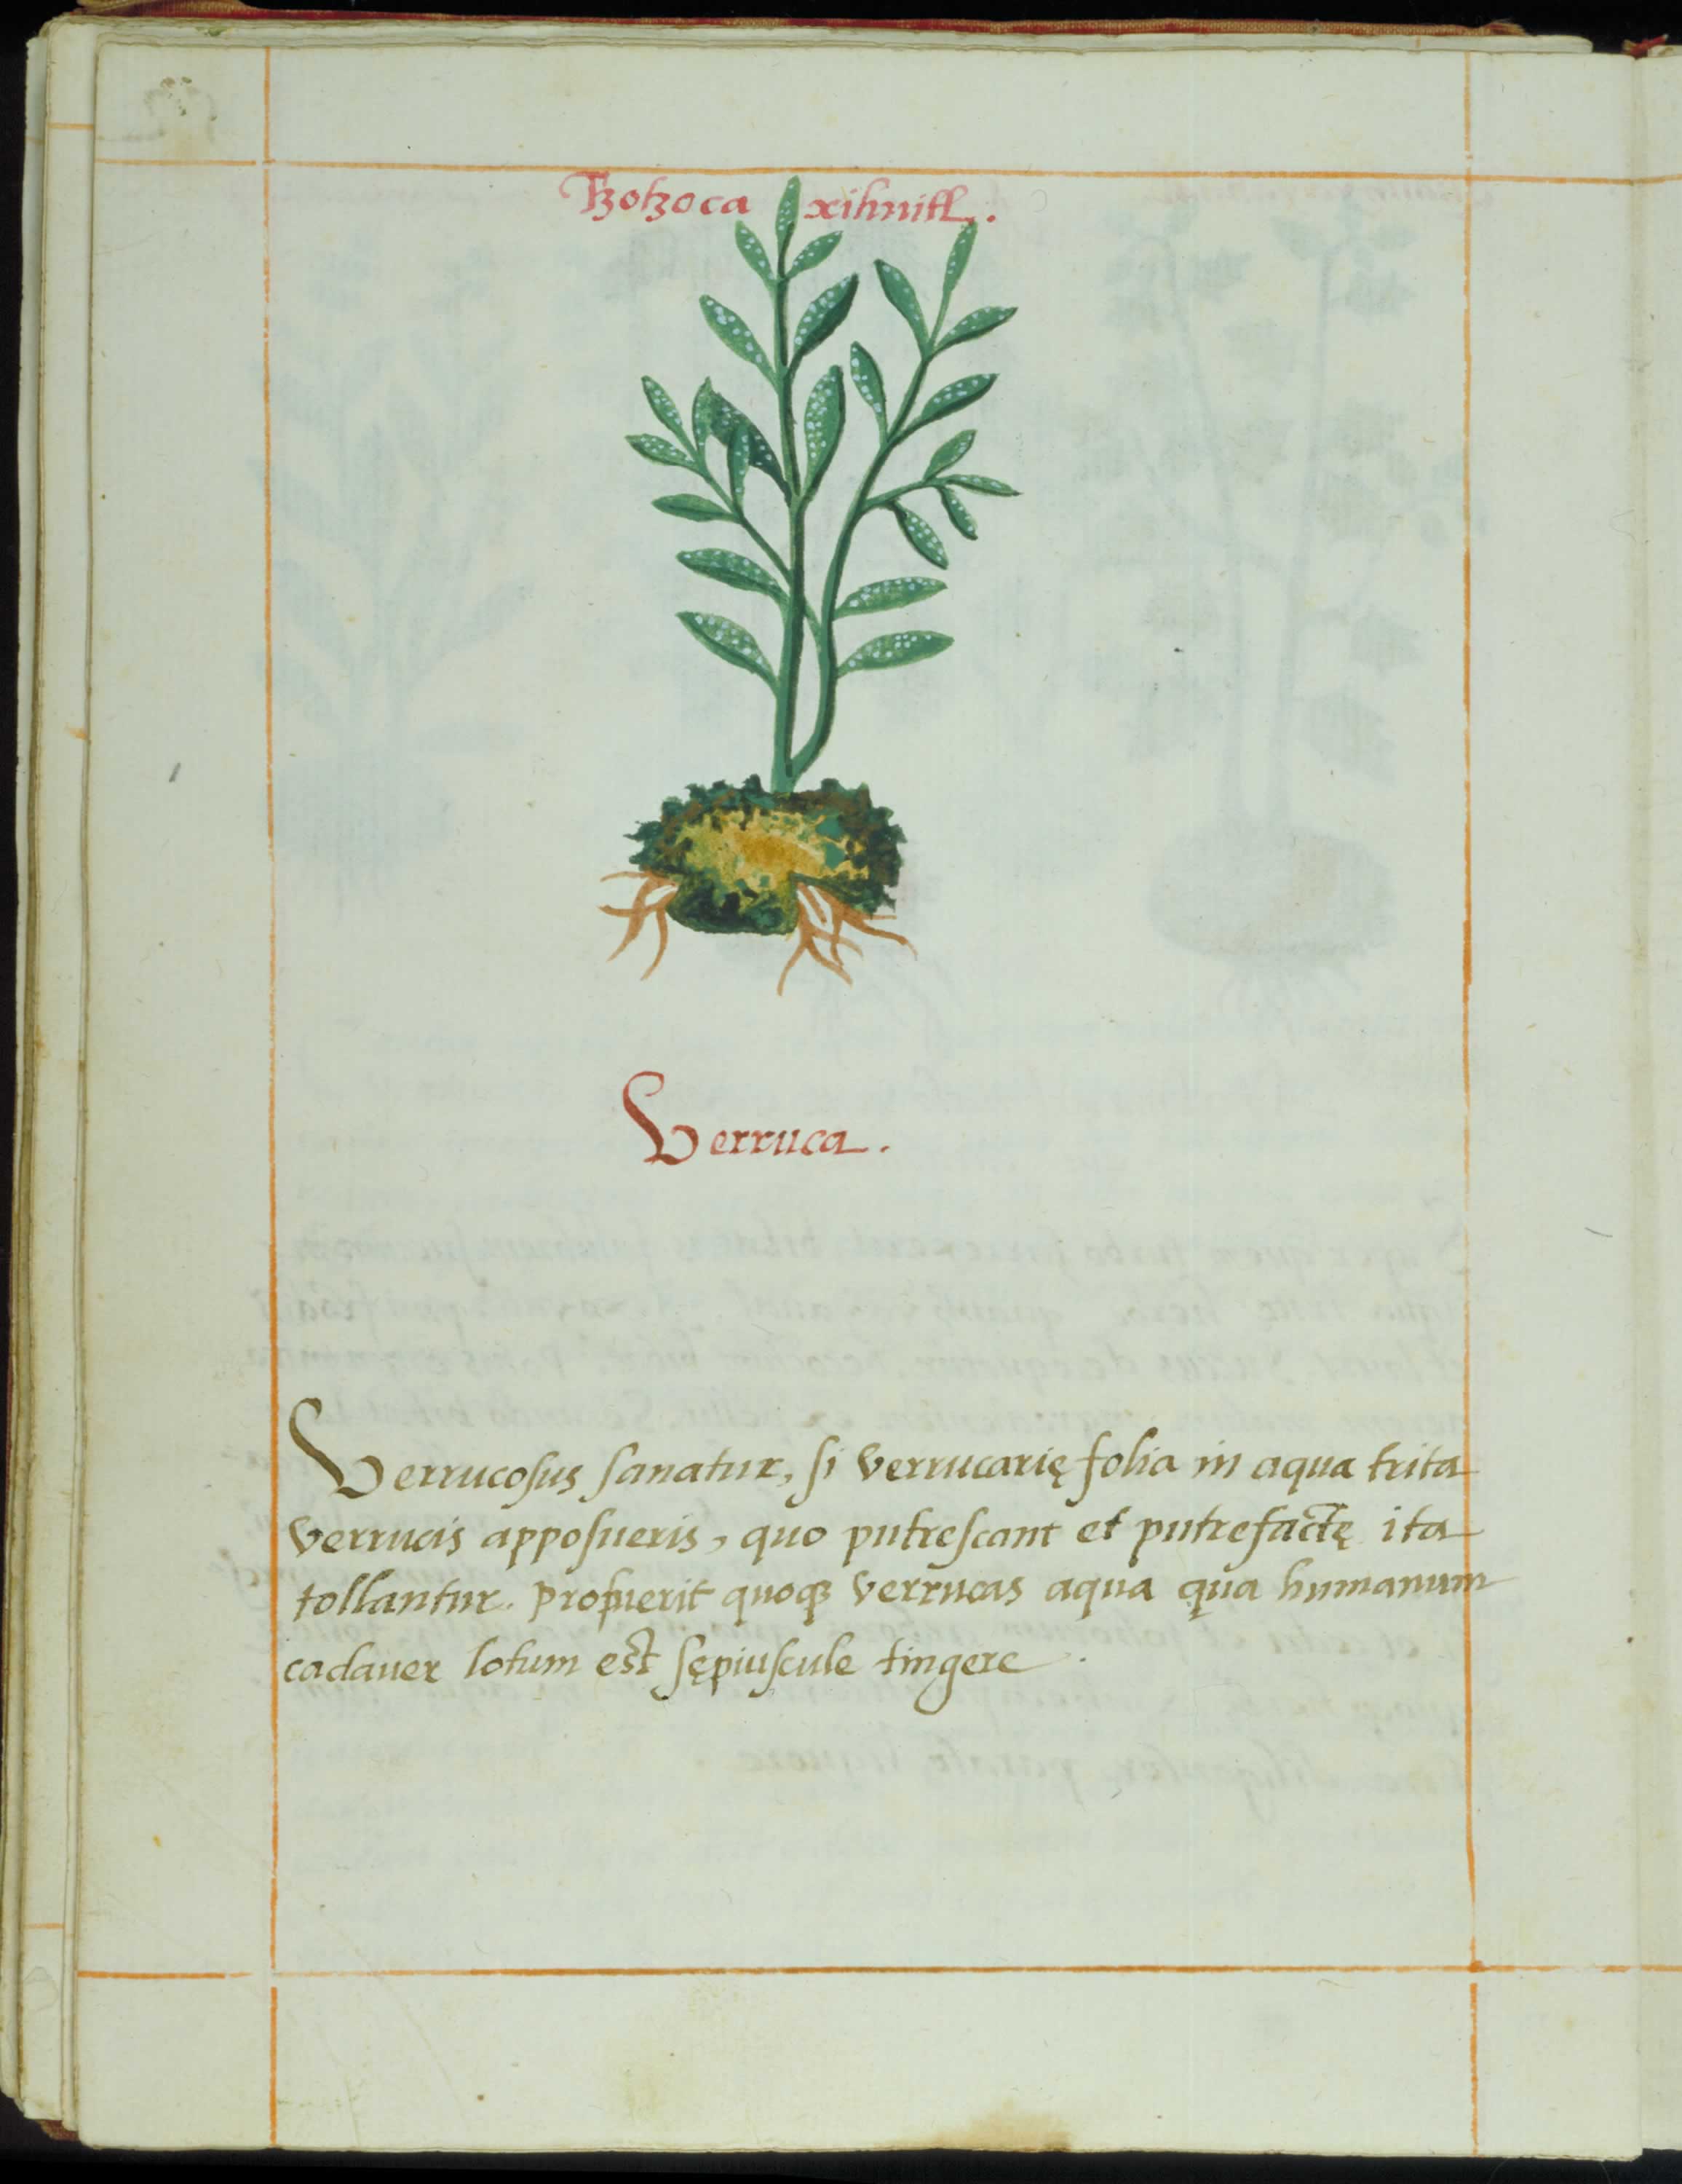 Tzotzoca xihuitl.
Verruca.
Verrucosus sanatur, si verrucarię folia in aqua trita
verrucis apposueris, quo putrescant et putrefactę ita
tollantur. Profuerit quoqꝫ verrucas aqua qua humanum
cadauer lotum est sępiuscule tingere.